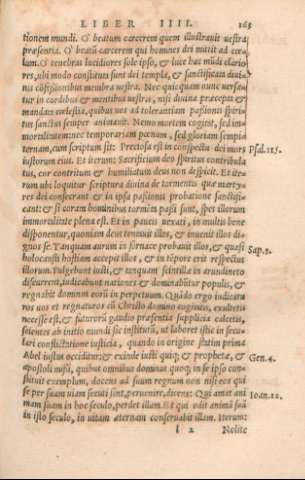 LIBER IIII. 163
tionem mundi. O beatum carcerem quem illustrauit uestra
præsentia. O beatū carcerem qui homines dei mittit ad cœ-
lum. O tenebras lucidiores sole ipso, & luce hac mūdi clario-
res, ubi modo constituta sunt dei templa, & sanctificata diui-
nis cōfeßionibus membra uestra. Nec quicquam nunc uersen-
tur in cordibus & mentibus uestris, nisi diuina præcepta &
mandata cœlestia, quibus uos ad tolerantiam paßionis spiri-
tus sanctus semper animauit. Nemo mortem cogitet, sed im-
mortalitatem: nec temporariam pœnam, sed gloriam sempi-
ternam, cum scriptum sit: Preciosa est in conspectu dei mors Psal.115.
iustorum eius. Et iterum: Sacrificium deo spiritus contribula
tus, cor contritum & humiliatum deus non despicit. Et ite-
rum ubi loquitur scriptura diuina de tormentis quæ marty-
res dei consecrant & in ipsa paßionis probatione sanctifi-
cant: & si coram hominibus tormēta paßi sunt, spes illorum
immortalitate plena est. Et in paucis uexati, in multis bene
disponentur, quoniam deus tentauit illos, & inuenit illos di-
gnos se. Tanquam aurum in fornace probauit illos, & quasi Sap.3.
holocausti hostiam accepit illos, & in tēpore erit respectus
illorum. Fulgebunt iusti, & tanquam scintillæ in arundineto
discurrent, iudicabunt nationes & dominabūtur populis, &
regnabit dominus eorū in perpetuum. Quādo ergo iudicatu
ros uos et regnaturos cū Christo domino cogitatis, exultetis
necesse est, & futurorū gaudio præsentia supplicia calcetis,
scientes ab initio mundi sic institutū, ut laboret istic in secu-
lari conflictatione iusticia, quando in origine statim prima
Abel iustus occiditur: & exinde iusti quiq; & prophetæ, & Gen.4.
apostoli mißi, quibus omnibus dominus quoq; in se ipso con-
stituit exemplum, docens ad suum regnum non nisi eos qui
se per suam uiam secuti sunt, peruenire, dicens: Qui amat ani Ioan.12.
mam suam in hoc seculo, perdet illam. Et qui odit animā suā
in isto seculo, in uitam æternam conseruabit illam. Iterum:
l 2 Nolite